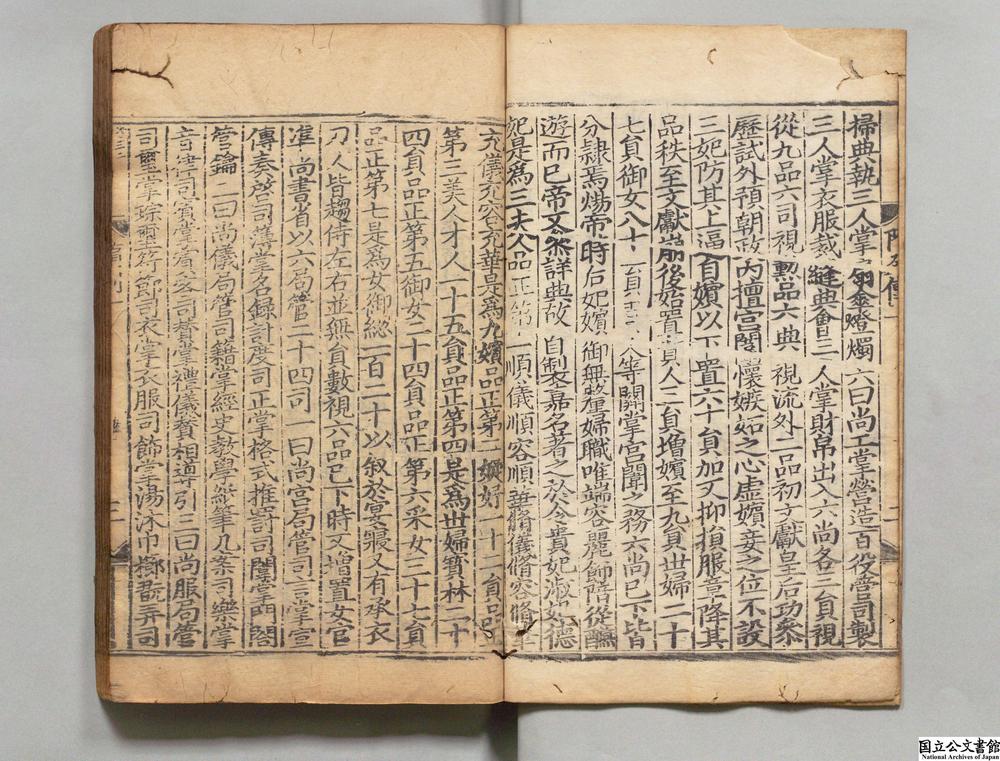 掃典執三人掌 翕燈燭六曰尚工掌營造百役營司製
三人掌衣服裁縫典會三人掌財帛出入六尚各三員視
從九品六司視勲品六典視流外二品初文獻皇后功參
歷試外預朝政內擅宮闈懷嫉妬之心虛嬪妾之位不設
三妃防其上逼自嬪以下置六十員加又抑損服章降其
品秩至文獻崩後始置貴人三員增嬪至九員世婦二十
七員御女八十一員 等關掌宮闈之務六尚已下皆
分隷焉煬帝時后妃嬪御無釐婦職唯端容麗飾陪從醼
遊而已帝又參詳典故自製嘉名著之於令貴妃淑妃德
妃是爲三夫人品正第一順儀順容順華脩儀脩容脩華
充儀充容充華是爲九嬪品正第二婕妤一十二員品正
第三美人才人一十五員品正第四是爲世婦寶林二十
四員品正第五御女二十四員品正第六采女三十七員
品正第七是爲女御總一百二十以叙於宴寢又有承衣
刀人皆趨侍左右並無員數視六品已下時又增置女官
准尚書省以六局管二十四司一曰尚宮局管司言掌宣
傳奏啓司簿掌名録計度司正掌格式推罰司闈掌門閤
管鑰二曰尚儀局管司籍掌經史教學紙筆几案司樂掌
音律司賓掌賓客司賛掌禮儀賛相導引三曰尚服局管
司璽掌琮璽符節司衣掌衣服司飾掌湯沐巾櫛翫弄司
国立公文書館
National Archives of Japan